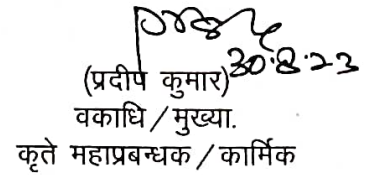 30.8.23
(प्रदीप कुमार)
वकाधि / मुख्या.
कृते महाप्रबन्धक / कार्मिक